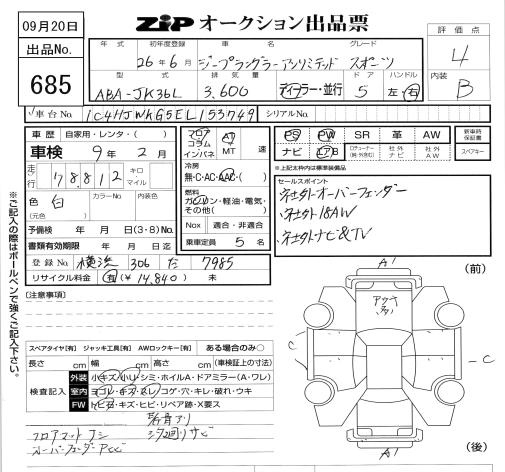 09月20日
ZiP オークション出品票
出品No.
685
年式 初年度登録 車名 グレード
26年6月 ジープラングラーアンリミテッド スポーツ
型式 排気量 ドア ハンドル
ABA-JK36L 3,600 ディーラー・並行 5 左・右
評価点
4
内装
B
車台No. 1C4HJWKG5EL153749 シリアルNo.
車歴 自家用・レンタ・( )
車検 9年2月
走行 78,812 キロ マイル
色 白 カラーNo. 内装色
(元色)
予備検 年 月 日(3・8)No.
書類有効期限 年 月 日迄
登録No. 横浜 306 た 7985
リサイクル料金 有(¥14,840) 未
フロア コラム インパネ AT MT 速
冷房
無・C・AC・AAC・( )
燃料
ガソリン・軽油・電気・
その他( )
Nox 適合・非適合
乗車定員 5 名
PS PW SR 革 AW 新車時保証書
ナビ エアB 社外ナビ 社外AW スペアキー
※上記太枠内は標準装備品
セールスポイント
社外オーバーフェンダー
社外18AW
社外ナビ&TV
※ご記入の際はボールペンで強くご記入下さい。
[注意事項]
スペアタイヤ[有] ジャッキ工具[有] AWロックキー[有] ある場合のみ○
長さ cm 幅 cm 高さ cm (車検証上の寸法)
検査記入
外装 小キズ・小U・シミ・ホイルA・ドアミラー(A・ワレ)
室内 ヨゴレ・キズ・スレ・コゲ・穴・キレ・破れ・ウキ
FW トビ石・キズ・ヒビ・リペア跡・X要ス
フロアマットナシ
下廻りサビ
(前)
A1
C
C
A1
(後)